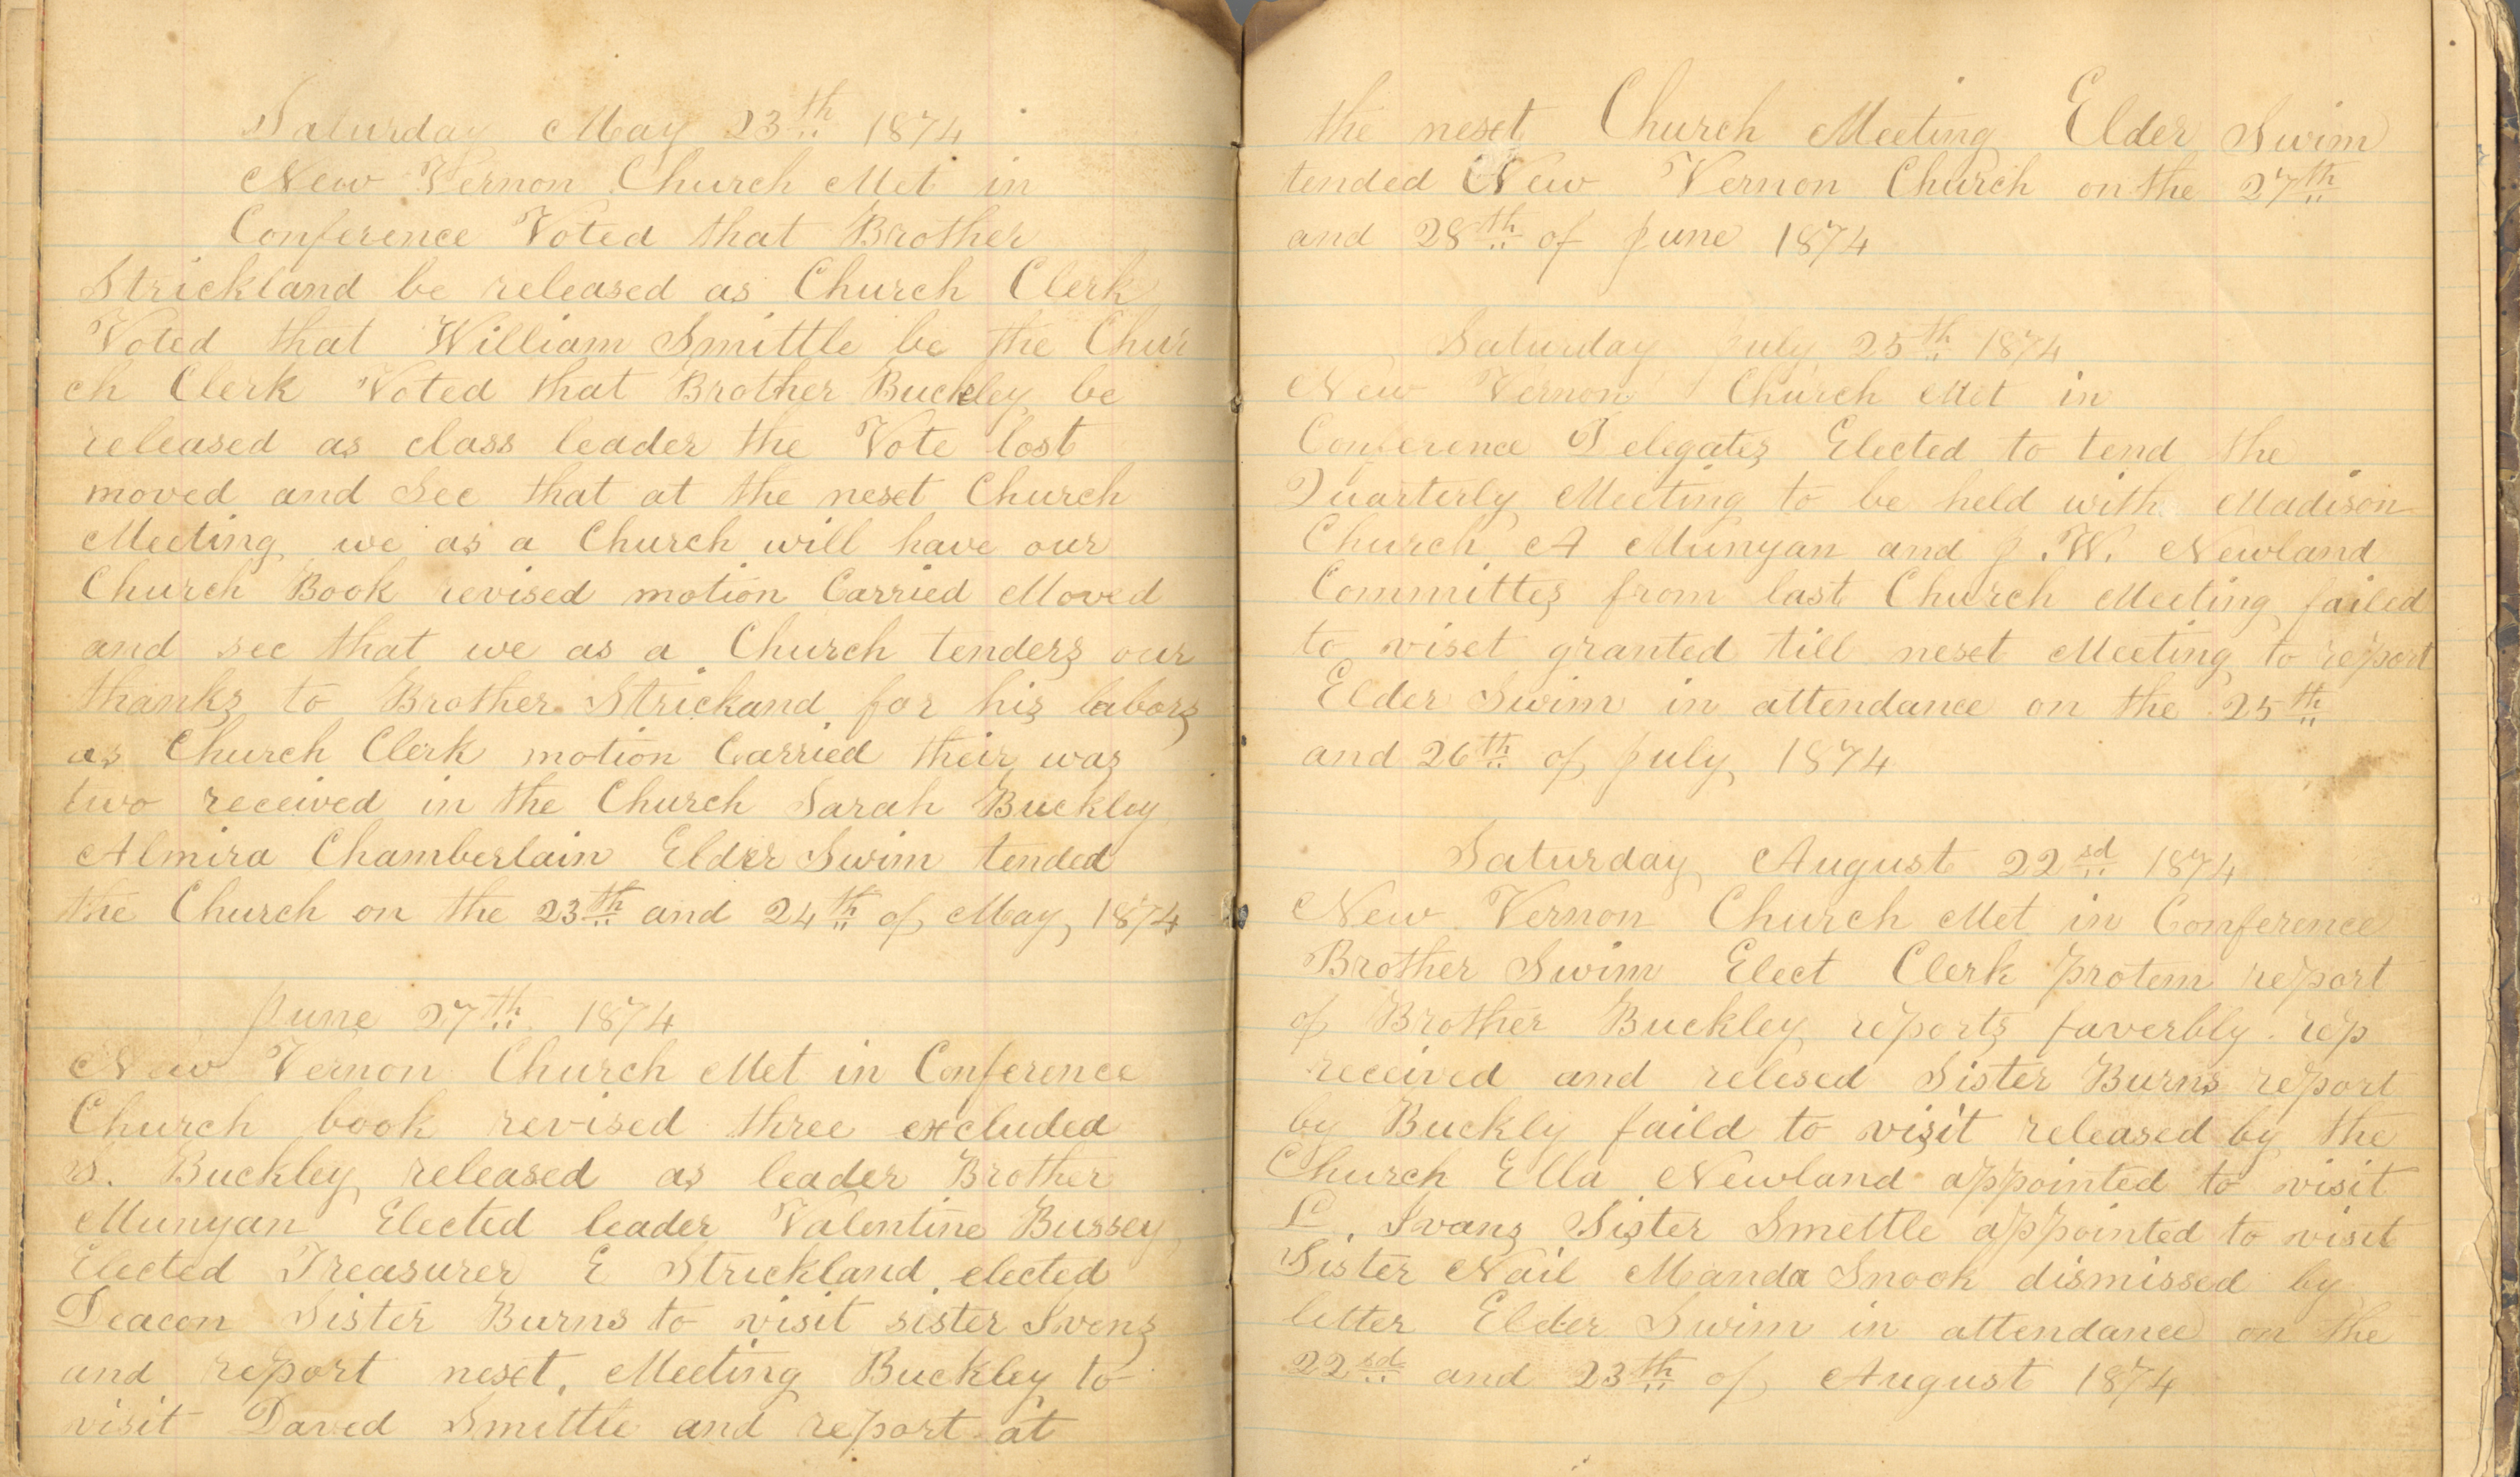 Saturday May 23th 1874
New Vernon Church Met in
Conference Voted that Brother
Strickland be released as Church Clerk
Voted that William Smittle be the Chur
ch Clerk Voted that Brother Buckley be
released as class leader the Vote lost
moved and Sec that at the nesct Church
Meeting we as a Church will have our
Church Book revised motion Carried Moved
and sec that we as a Church tenders our
thanks to Brother Strickand for his labors
as Church Clerk motion Carried their was
two received in the Church Sarah Buckley
Almira Chamberlain Elder Swim tended
the Church on the 23th and 24th of May, 1874
June 27th 1874
New Vernon Church Met in Conference
Church book revised three excluded
Buckley released as leader Brother
Munyan Elected leader Valentine Bussey
Elected Treasurer E Strickland elected
Deacon Sister Burns to visit sister Ivens
and report nesct. Meeting Buckley to
visit Daved Smittle and report at
the nesct Church Meeting Elder Swim
tended New Vernon Church on the 27th
and 28th of June 1874
Saturday July 25th 1874
New Vernon Church Met in
Conference Delegates Elected to tend the
Quarterly Meeting to be held with Madison
Church A Munyan and J. W. Newland
Committes from last Church Meeting failed
to viset granted till nesct Meeting to report
Elder Swim in attendance on the 25th
and 26th of July 1874
Saturday August 22sd 1874
New Vernon Church Met in Conference
Brother Swim Elect Clerk protem report
of Brother Buckley reports faverbly. rep
received and relesed Sister Burns report
by Buckly faild to visit released by the
Church Ella Newland appointed to visit
Ivans Sister Smettle appointed to visit
Sister Nail Manda Snook dismissed by
letter Elder Swim in attendance on the
22sd and 23th of August 1874